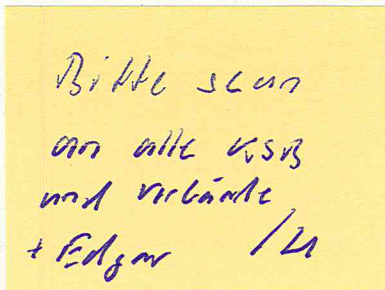 Bitte scan
an alle KSB
und Verbände
+ Edgar